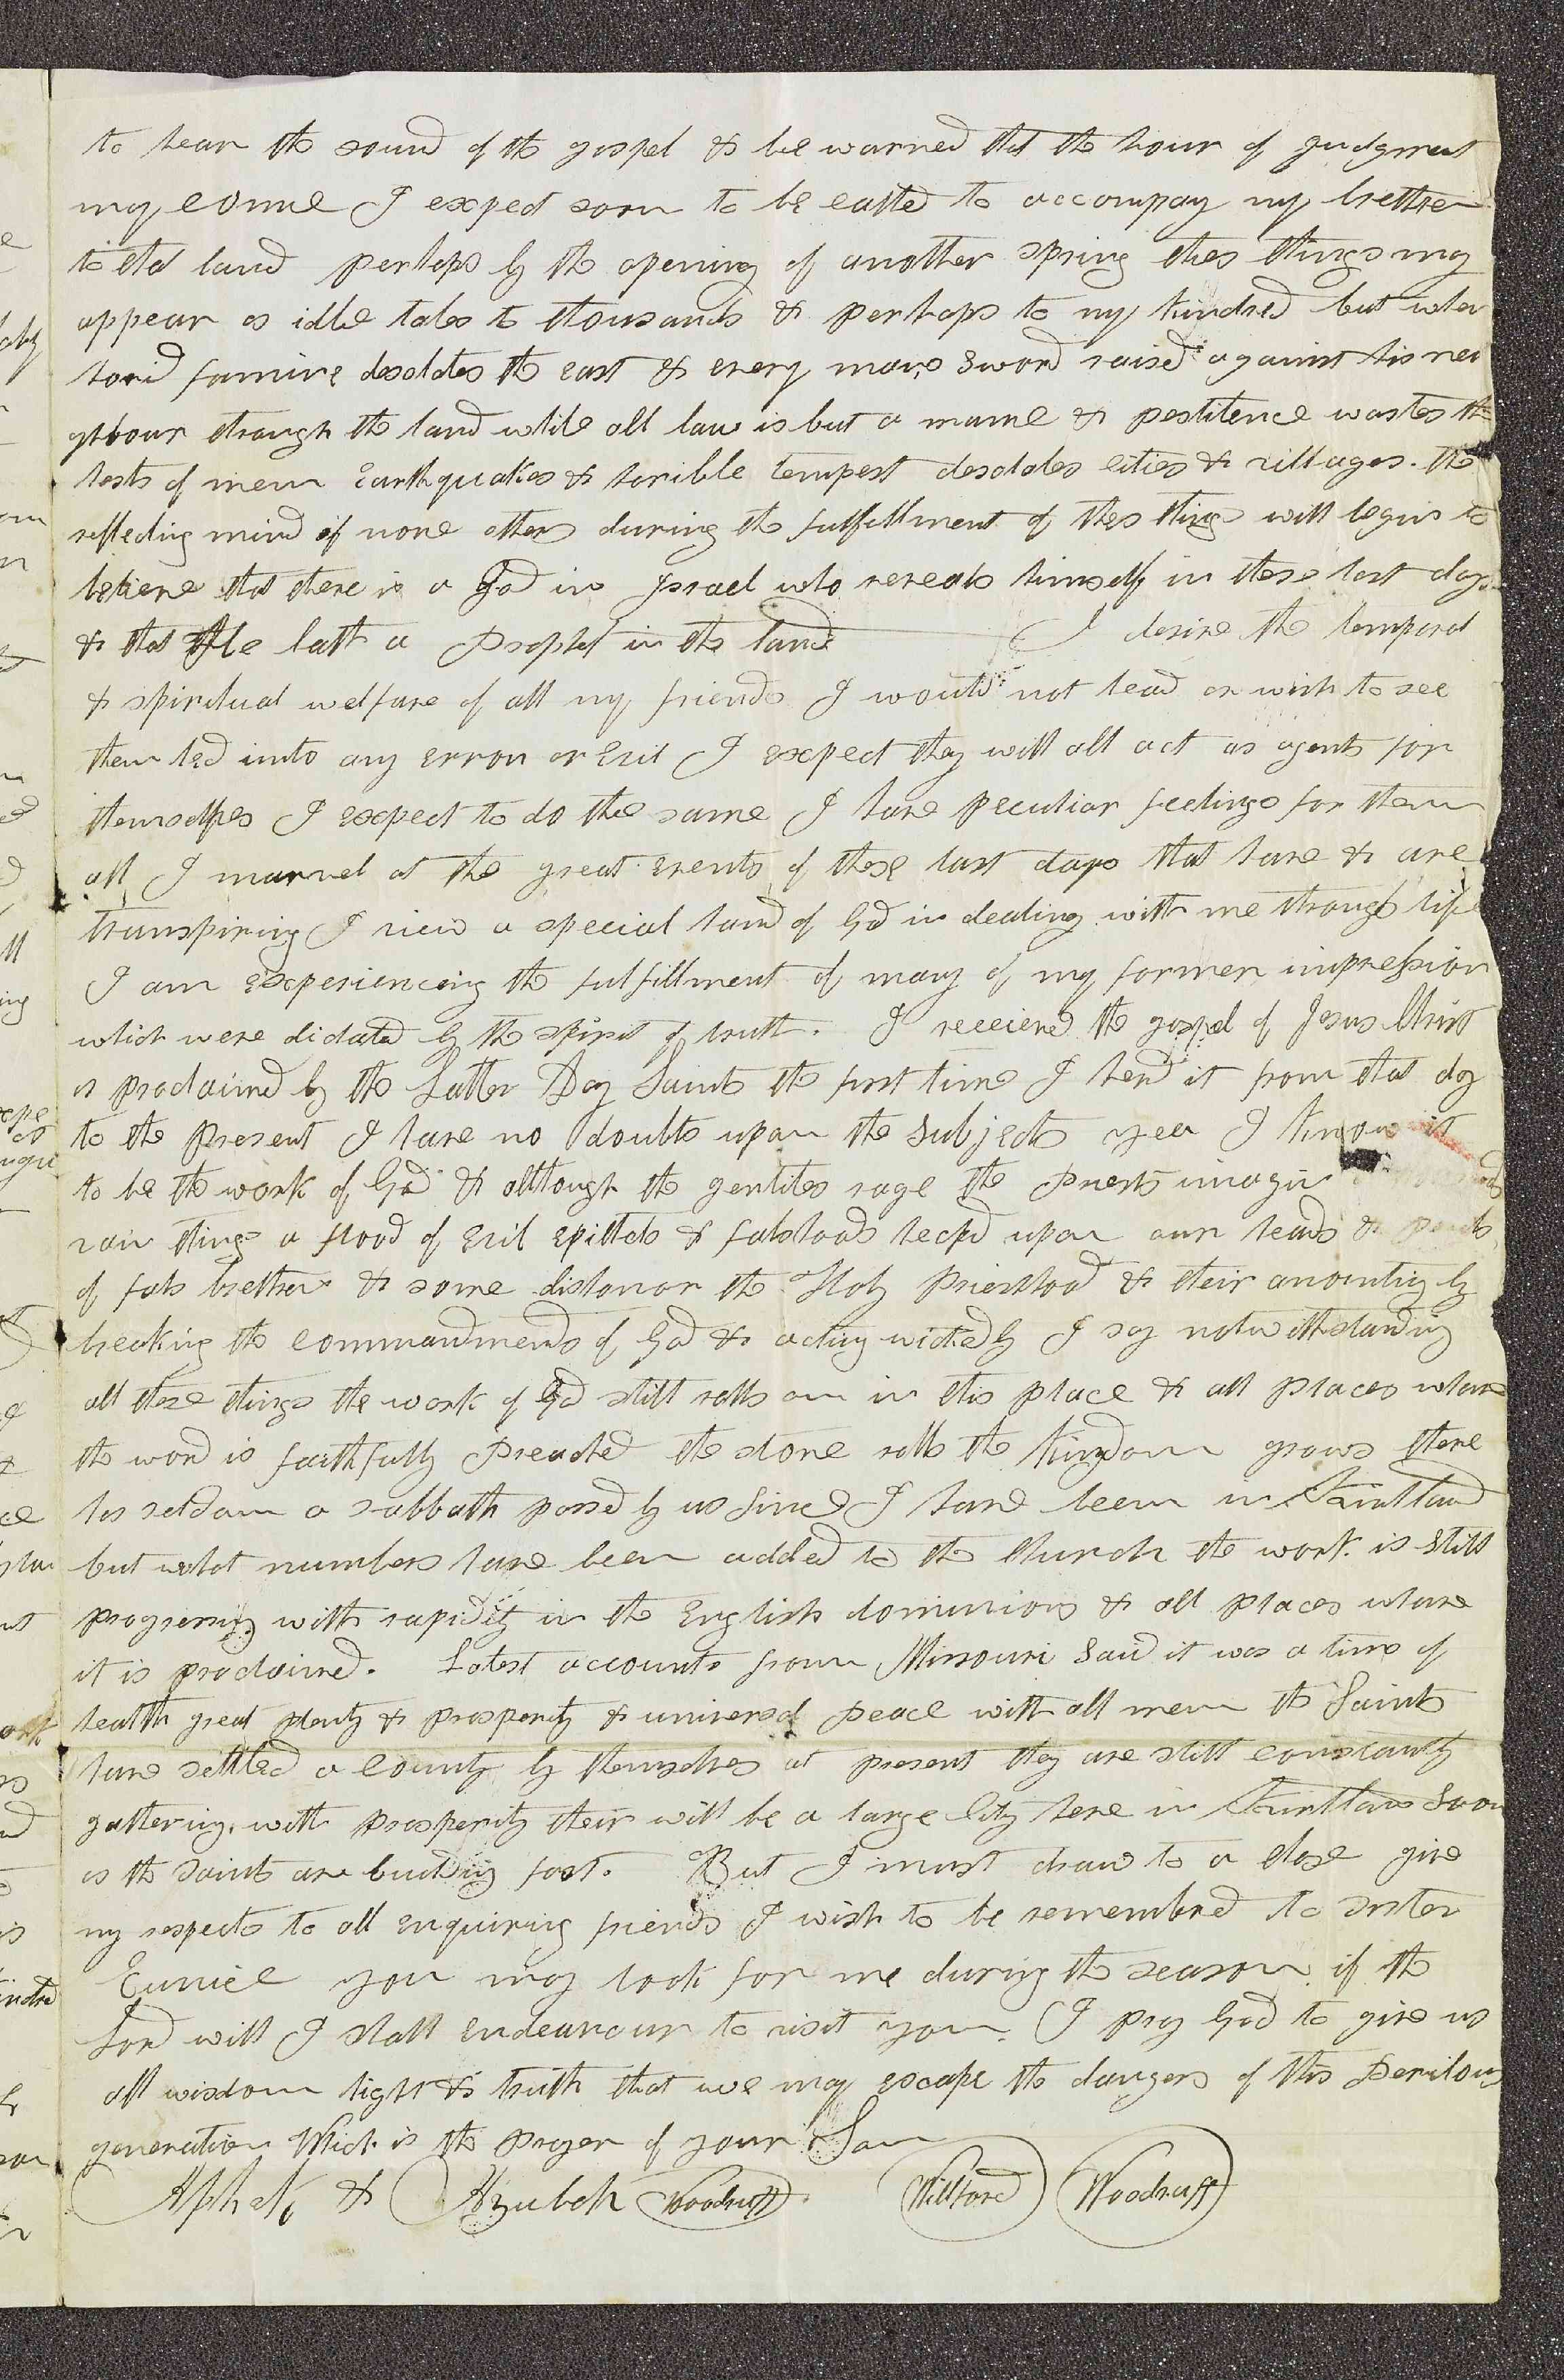 to hear the sound of the gospel & be warned that the hour of judgment
may come I expect soon to be called to accompay my brethren
to that land perhaps by the opening of another spring thes things may
appear as idle tales to thousands & perhaps to my kindred but when
horid famine desolates the east & every mans sword raised against his nei
ghbour through the land while all law is but a name & pestilence wastes the
hosts of men Earthquakes & horible tempest desolates cities & villages. the
reflecting mind if none others during the fulfillment of thes things will begin to
believe that there is a God in Israel who reveals himself in these last days
& that He hath a Prophet in the land I desire the temporal
& spiritual welfare of all my friends I would not lead or wish to see
them led into any error or Evil I expect they will all act as agents for
themselves I expect to do the same I have peculiar feelings for them
all I marvel at the great events of these last days that have & are
transpiring I view a special hand of God in dealing with me through life
I am experiencing the fulfillment of many of my former impression
which were dictated by the spirit of truth. I received the gospel of Jesus Christ
as proclaimed by the Latter Day Saints the first time I herd it from that day
to the present I have no doubts upon the subject yea I know it
to be the work of God & although the gentiles rage the Priests imagin
vain things a flood of evil epithets & falshoods heapd upon our heads &
of fals brethren & some dishonor the Holy Priesthood & their anointing by
breaking the commandments of God & acting wickedly I say notwithstanding
all these things the work of God still rolls on in this place & all places whare
the word is faithfully Preached the stone rolls the kingdom grows there
has seldom a sabbath passed by us since I have been in Kirtland
but what numbers have been added to the Church the work is still
progressing with rapidity in the English dominions & all places whare
it is proclaimed. Latest accounts from Missouri said it was a time of
health great plenty & prosperity & universal peace with all men the Saints
have settled a County by themselves at present they are still constantly
gathering. with prosperity their will be a large City here in Kirtland soon
as the saints are building fast. But I must draw to a close give
my respects to all enquiring friends I wish to be remembred to sister
Eunice you may look for me during the season if the
Lord will I shall endeavour to visit you. I pray God to give us
all wisdom light & truth that we may escape the dangers of this perilous
generation Which is the prayer of your Son
Aphek & Azubah Woodruff. Willford Woodruff